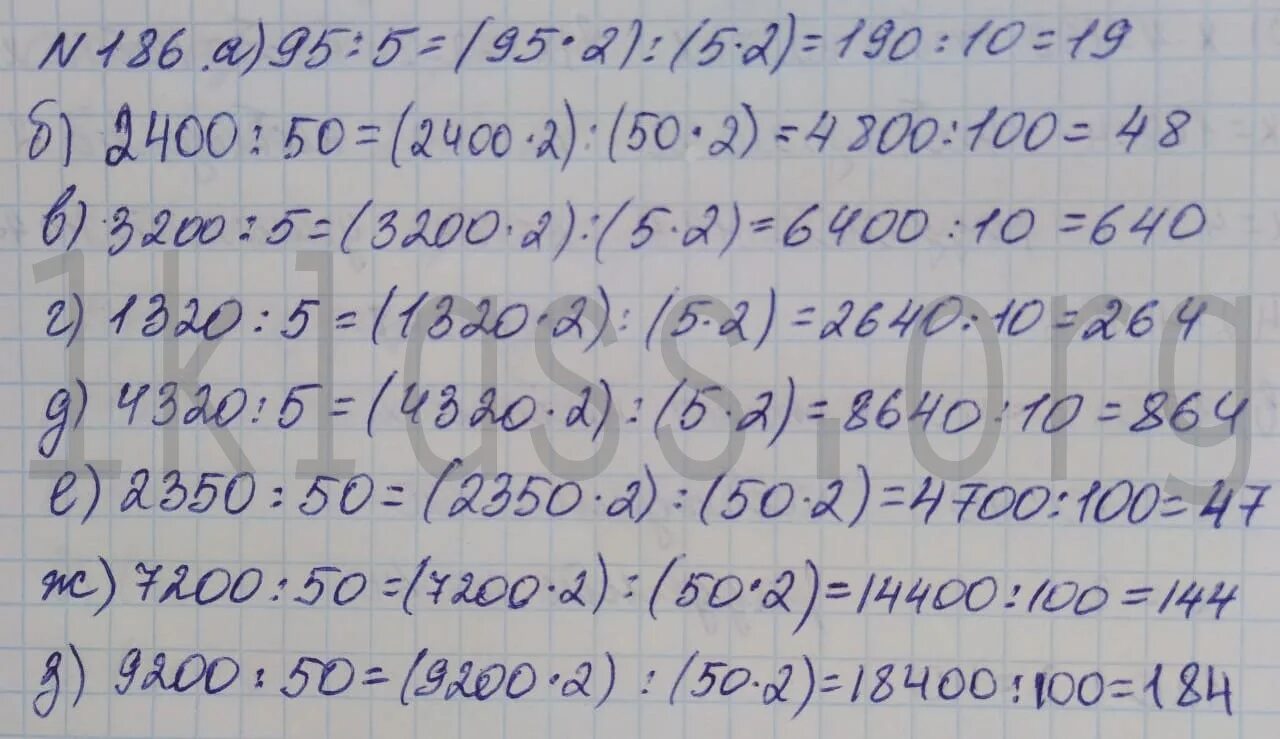 N186. а) 95:5=(95·2):(5·2)=190:10=19
б) 2400:50=(2400·2):(50·2)=4800:100=48
в) 3200:5=(3200·2):(5·2)=6400:10=640
г) 1320:5=(1320·2):(5·2)=2640:10=264
д) 4320:5=(4320·2):(5·2)=8640:10=864
е) 2350:50=(2350·2):(50·2)=4700:100=47
ж) 7200:50=(7200·2):(50·2)=14400:100=144
з) 9200:50=(9200·2):(50·2)=18400:100=184
1klass.org